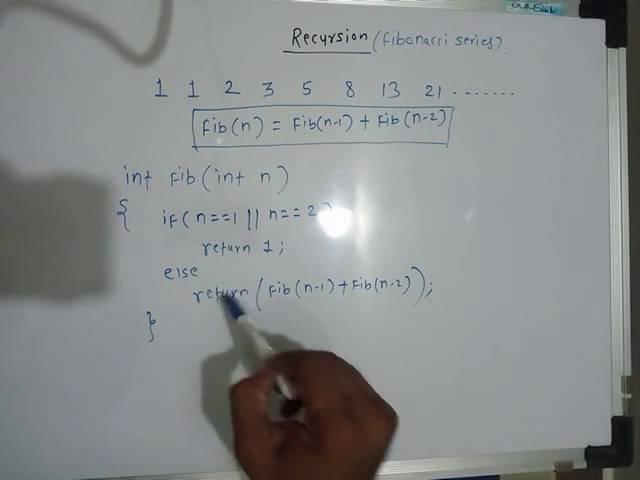 Recursion (Fibonacci series)
1 1 2 3 5 8 13 21 .......
Fib(n) = Fib(n-1) + Fib(n-2)
int Fib(int n)
{ if(n==1 || n==2)
return 1;
else
return (Fib(n-1)+Fib(n-2));
}